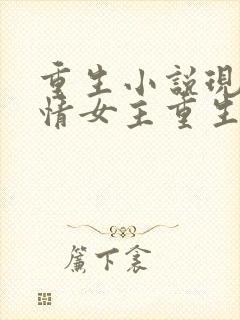 重生小説現
情女主重生
簾下衾